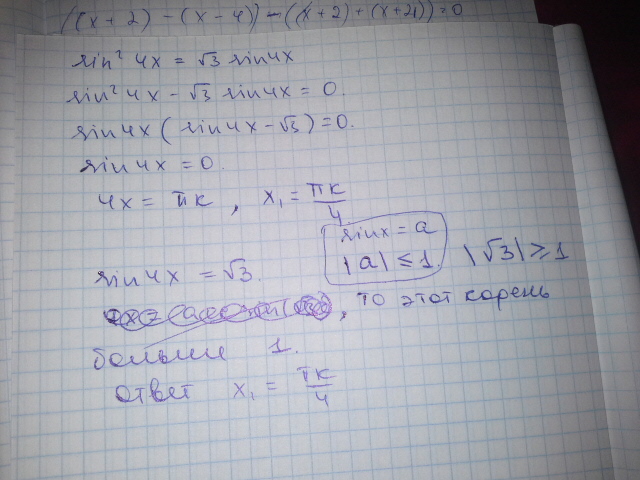 ((x + 2) - (x - 4)) - ((x + 2) + (x + 21)) = 0
sin² 4x = √3 sin4x
sin² 4x - √3 sin4x = 0.
sin4x (sin4x - √3) = 0.
sin 4x = 0.
4x = πк, x₁ = πк/4
sinx = a
|a| ≤ 1
|√3| ≥ 1
sin 4x = √3.
, то этот корень
больше 1.
ответ x₁ = πк/4